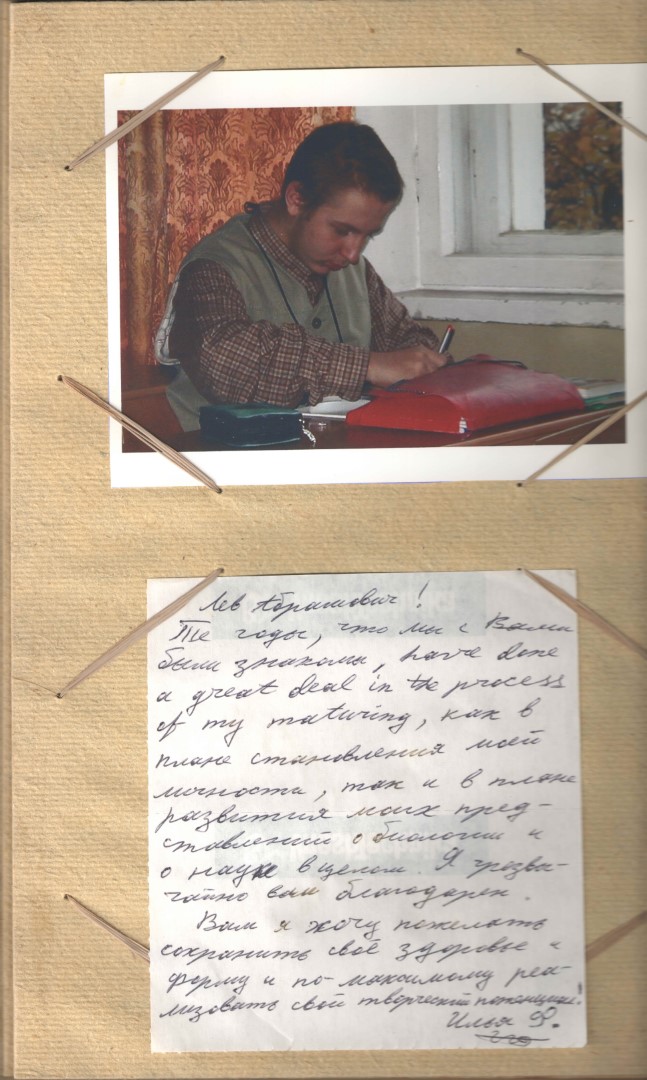 Лев Абрамович!
Те годы, что мы с Вами
были знакомы, have done
a great deal in the process
of my maturing, как в
плане становления моей
личности, так и в плане
развития моих пред-
ставлений о биологии и
о науке в целом. Я чрезвы-
чайно вам благодарен.
Вам я хочу пожелать
сохранить своё здоровье и
форму и по максимуму реа-
лизовать свой творческий потенциал!
Илья Ф.